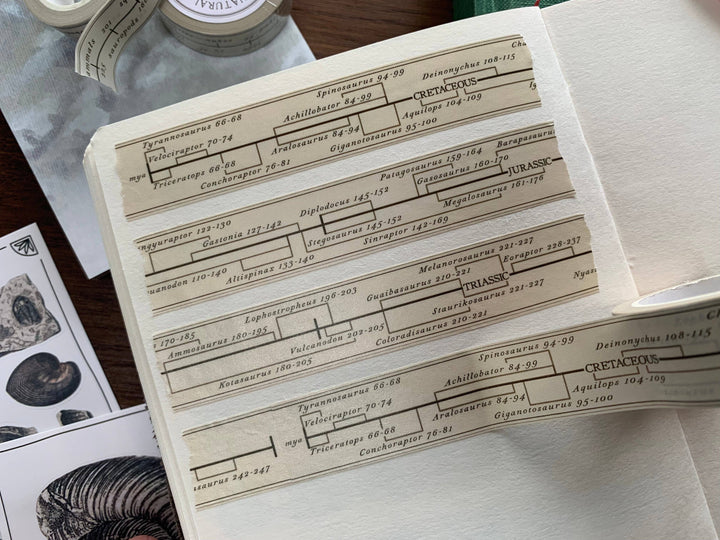 NATURAL
Spinosaurus 94-99
Deinonychus 108-115
Tyrannosaurus 66-68
Achillobator 84-99
CRETACEOUS
Velociraptor 70-74
mya
Aralosaurus 84-94
Aquilops 104-109
Triceratops 66-68
Giganotosaurus 95-100
Conchoraptor 76-81
Patagosaurus 159-164
Diplodocus 145-152
Gasosaurus 160-170
JURASSIC
122-130
Gastonia 127-142
Megalosaurus 161-176
Stegosaurus 145-152
110-140
Sinraptor 142-169
Altispinax 133-140
Melanorosaurus 221-227
Eoraptor 228-237
Lophostropheus 196-203
Guaibasaurus 210-221
TRIASSIC
170-185
Ammosaurus 180-195
Staurikosaurus 221-227
Vulcanodon 202-205
Coloradisaurus 210-221
Kotasaurus 180-205
Spinosaurus 94-99
Deinonychus 108-115
Tyrannosaurus 66-68
Achillobator 84-99
CRETACEOUS
Velociraptor 70-74
mya
Aralosaurus 84-94
Aquilops 104-109
Triceratops 66-68
Giganotosaurus 95-100
Conchoraptor 76-81
242-247